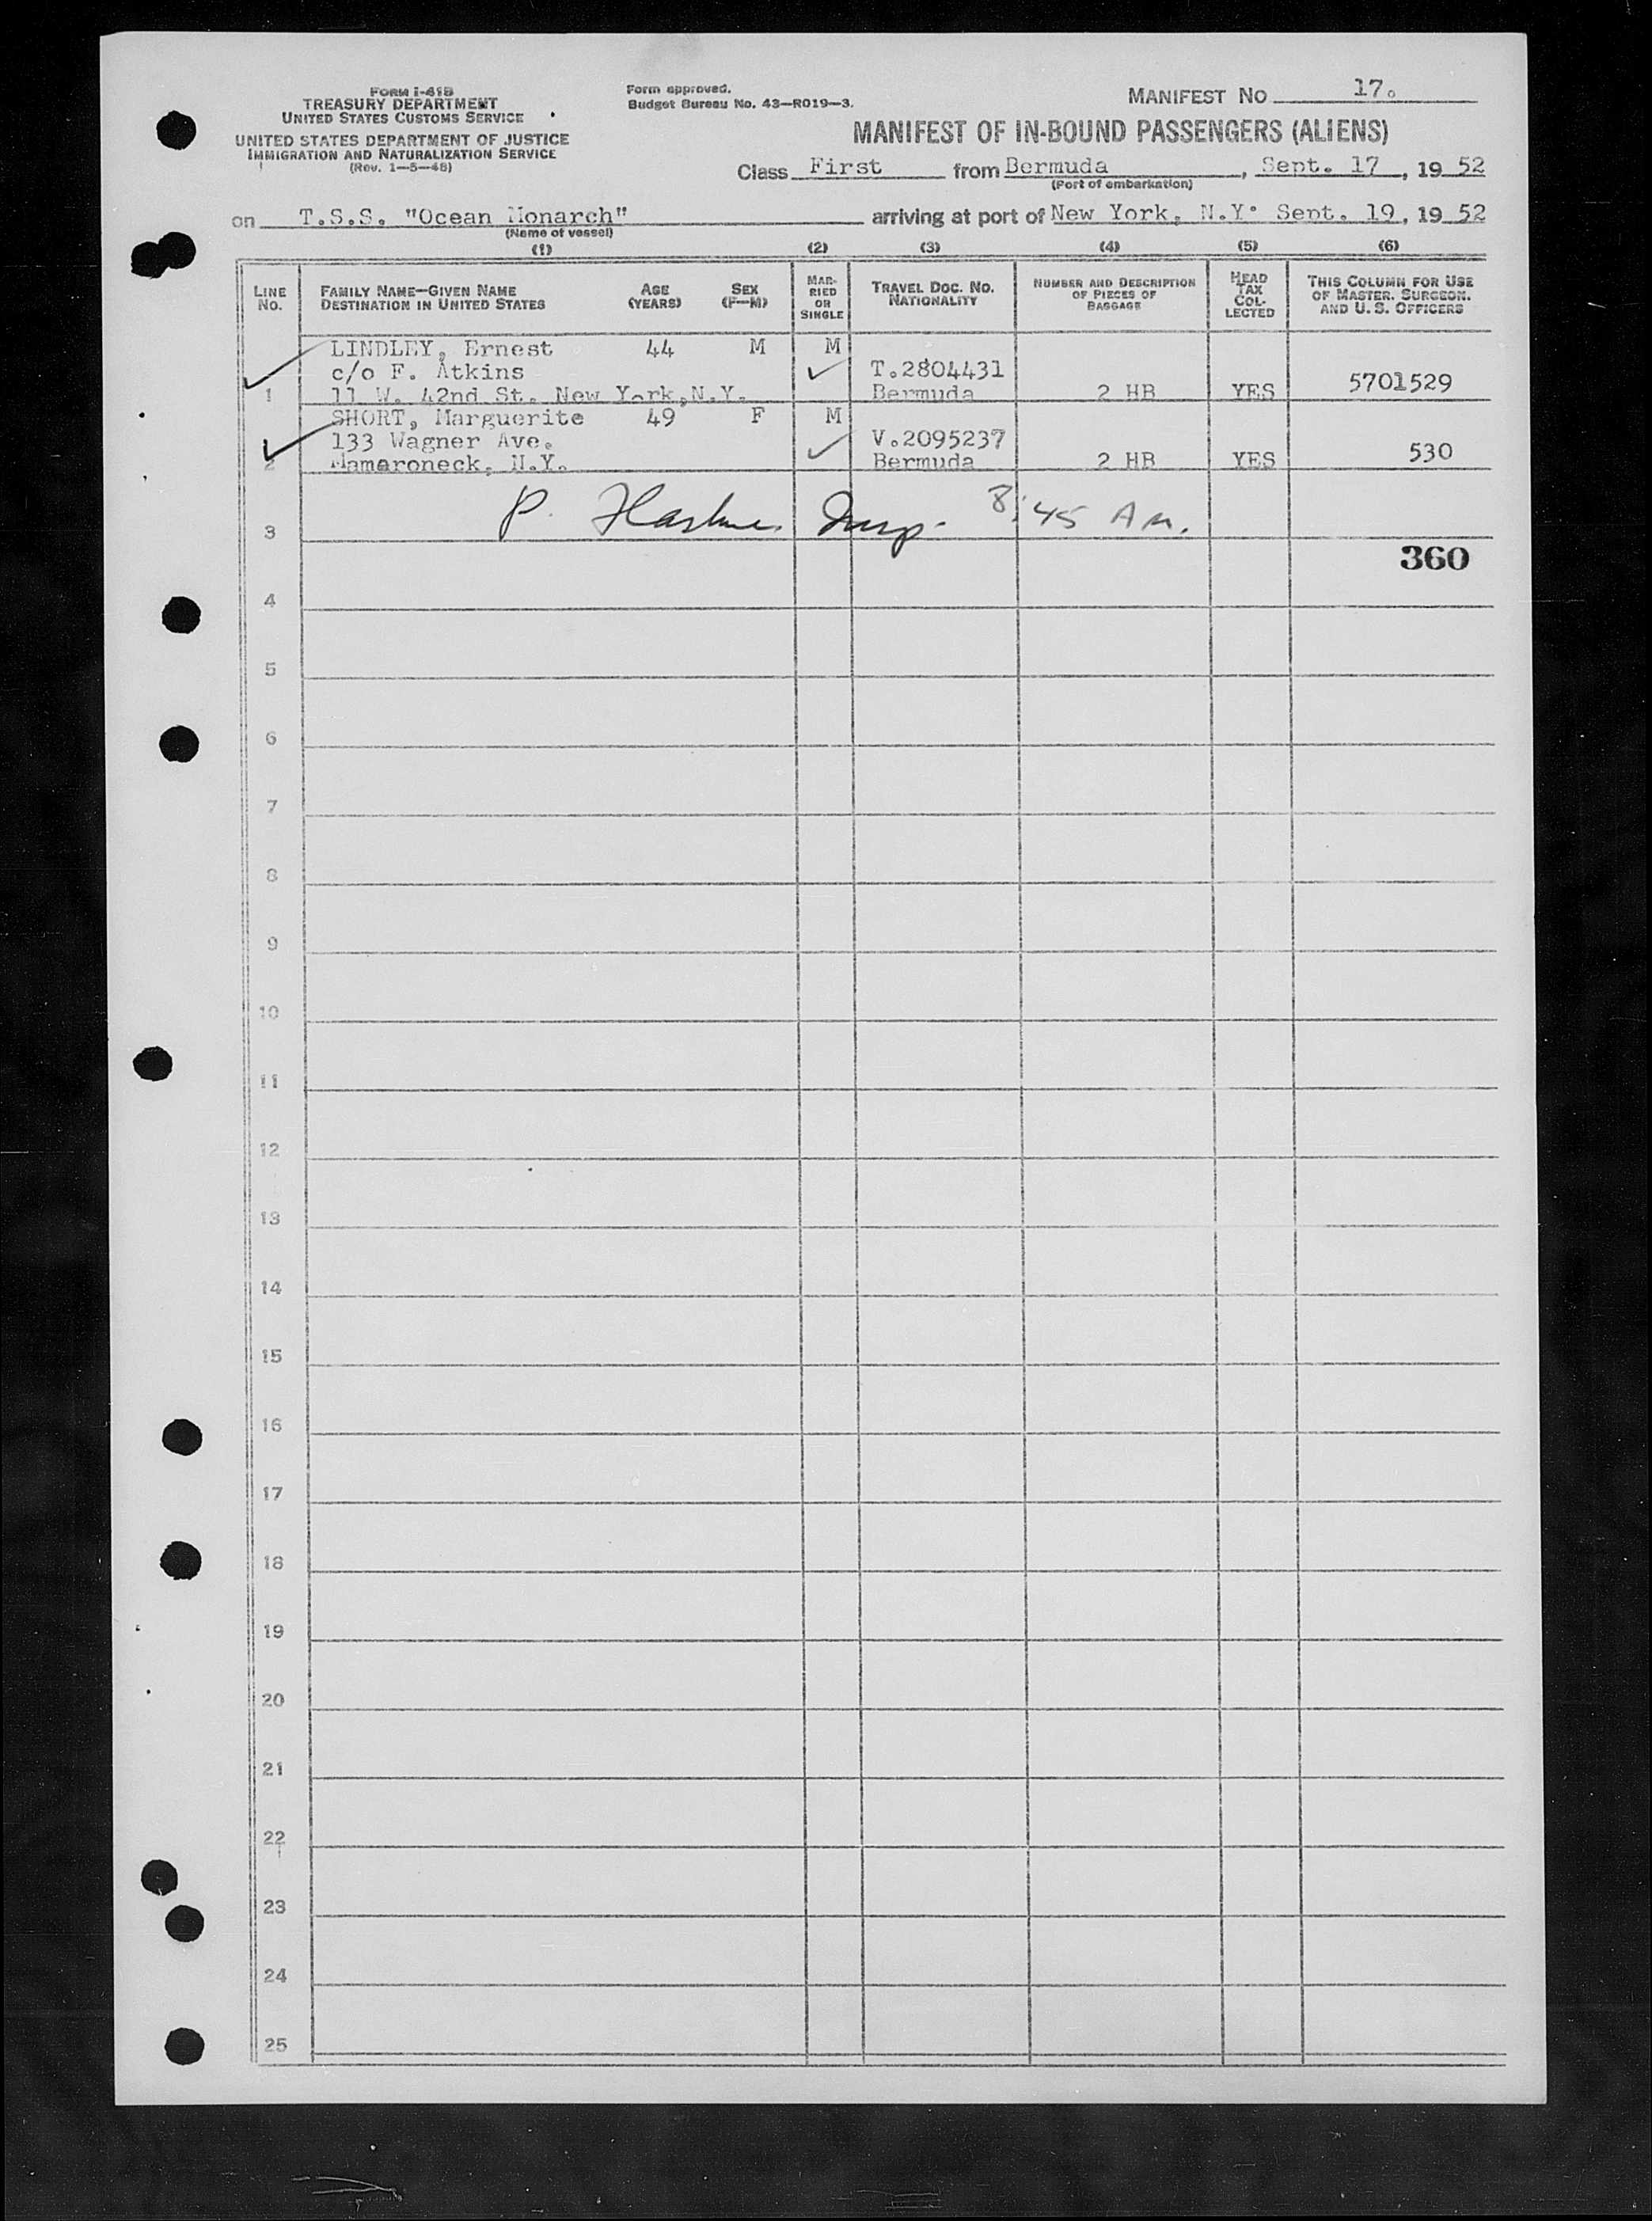 FORM I-415
TREASURY DEPARTMENT
UNITED STATES CUSTOMS SERVICE
UNITED STATES DEPARTMENT OF JUSTICE
IMMIGRATION AND NATURALIZATION SERVICE
(Rev. 1-5-48)
Form approved.
Budget Bureau No. 43-R019-3.
MANIFEST NO 17.
MANIFEST OF IN-BOUND PASSENGERS (ALIENS)
Class First from Bermuda, Sept. 17, 19 52
(Port of embarkation)
on T.S.S. "Ocean Monarch" arriving at port of New York, N.Y. Sept. 19, 19 52
(Name of vessel)
(1) (2) (3) (4) (5) (6)
LINE NO. FAMILY NAME—GIVEN NAME DESTINATION IN UNITED STATES AGE (YEARS) SEX (F—M) MARRIED OR SINGLE TRAVEL DOC. NO. NATIONALITY NUMBER AND DESCRIPTION OF PIECES OF BAGGAGE HEAD TAX COLLECTED THIS COLUMN FOR USE OF MASTER, SURGEON, AND U. S. OFFICERS
LINDLEY, Ernest 44 M M
c/o F. Atkins T.2804431
1 11 W. 42nd St. New York,N.Y. Bermuda 2 HB YES 5701529
SHORT, Marguerite 49 F M
133 Wagner Ave. V.2095237
2 Mamaroneck, N.Y. Bermuda 2 HB YES 530
3 P. Insp. 8:45 AM.
360
4
5
6
7
8
9
10
11
12
13
14
15
16
17
18
19
20
21
22
23
24
25